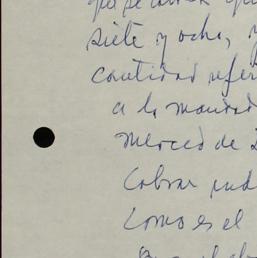 siete y ocho, y
cantidad refer
a la mandad
merced de
Cobrar ind
Como es el